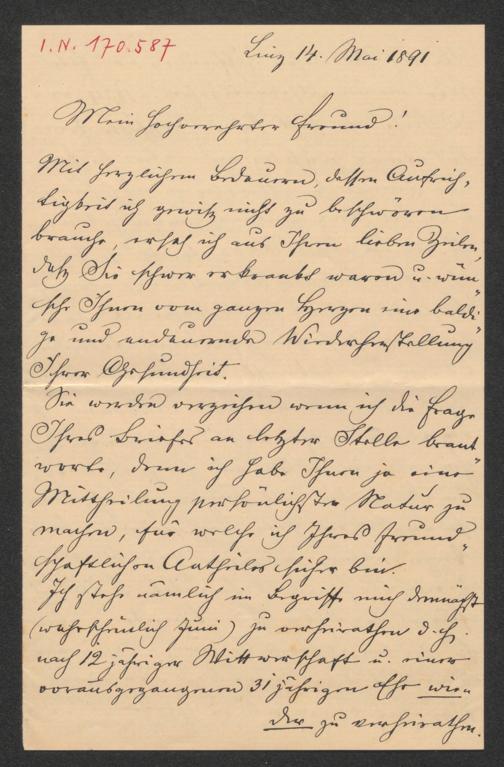 I.N. 170.587
Linz 14. Mai 1891
Mein hochverehrter Freund!
Mit herzlichem Bedauern, dessen Aufrich-
tigkeit ich gewiß nicht zu beschwören
brauche, ersah ich aus Ihren lieben Zeilen,
daß Sie schwer erkrankt waren u. wün-
sche Ihnen vom ganzen Herzen eine baldi-
ge und andauernde Wiederherstellung
Ihrer Gesundheit.
Sie werden verzeihen wenn ich die Frage
Ihres Briefes an letzter Stelle beant-
worte, denn ich habe Ihnen ja eine
Mittheilung persönlichster Natur zu
machen, für welche ich Ihres freund-
schaftlichen Antheiles sicher bin.
Ich stehe nämlich im Begriffe mich demnächst
(wahrscheinlich Juni) zu verheirathen d. h.
nach 12 jähriger Wittwerschaft u. einer
vorausgegangenen 31 jährigen Ehe wie-
der zu verheirathen.